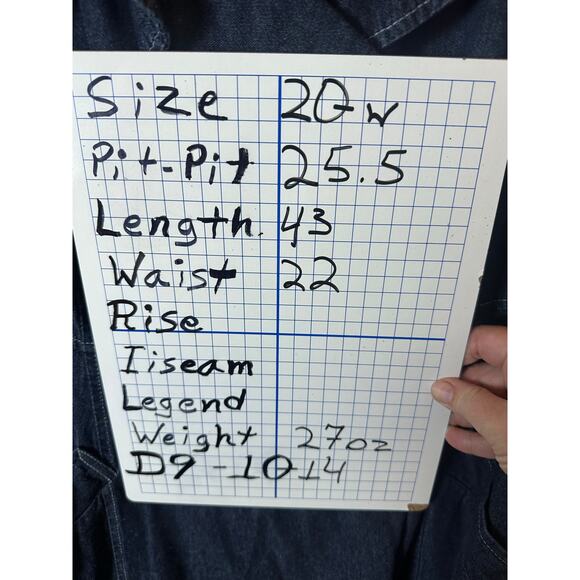 Size 20w
Pit-Pit 25.5
Length. 43
Waist 22
Rise
Iiseam
Legend
Weight 27oz
D9-1014